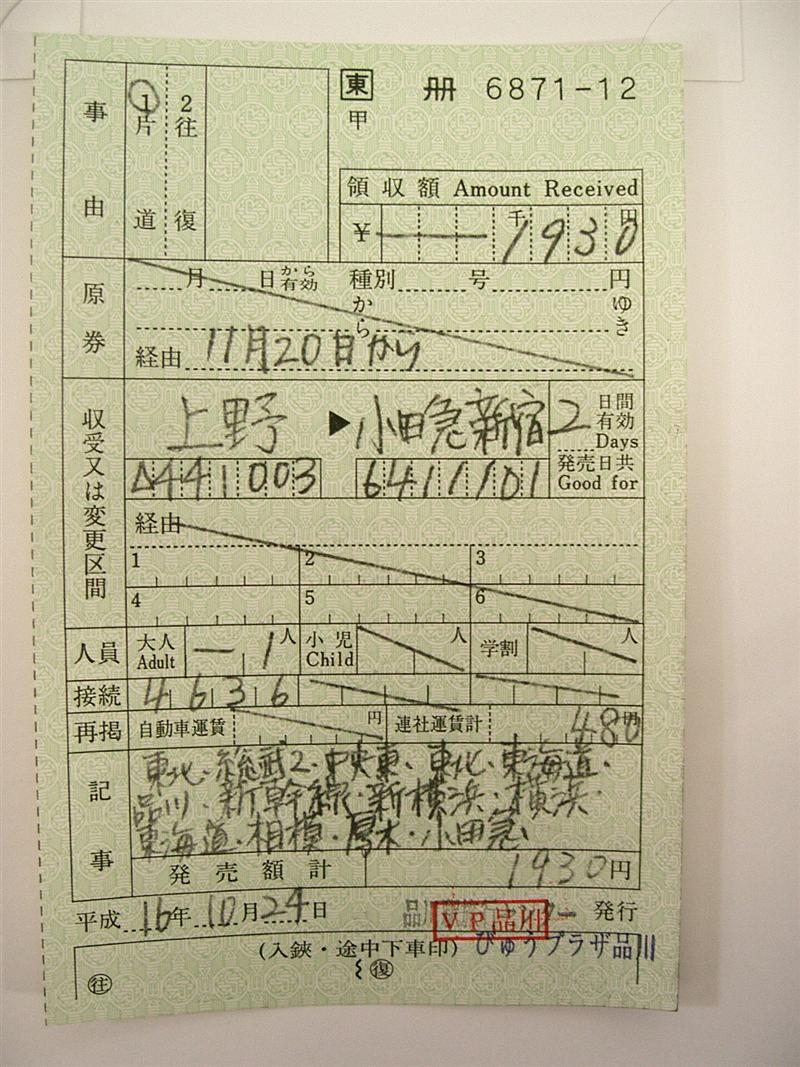 東 冊 6871-12
甲
事由
1片道
2往復
領収額 Amount Received
¥ 千 円
1930
原券
月 日から有効 種別 号 円
から ゆき
経由 11月20日から
収受又は変更区間
上野 ▶ 小田急新宿
2 日間有効 Days
発売日共 Good for
4441003 6411101
経由
1 2 3
4 5 6
人員 大人 Adult 一 1人 小児 Child 人 学割 人
接続 4636
再掲 自動車運賃 円 連社運賃計 480円
記事
東北・総武2・中央東・東北・東海道・
品川・新幹線・新横浜・横浜・
東海道・相模・厚木・小田急
発売額計 1930円
平成16年10月24日 発行
VP品川
(入鋏・途中下車印) びゅうプラザ品川
往 復